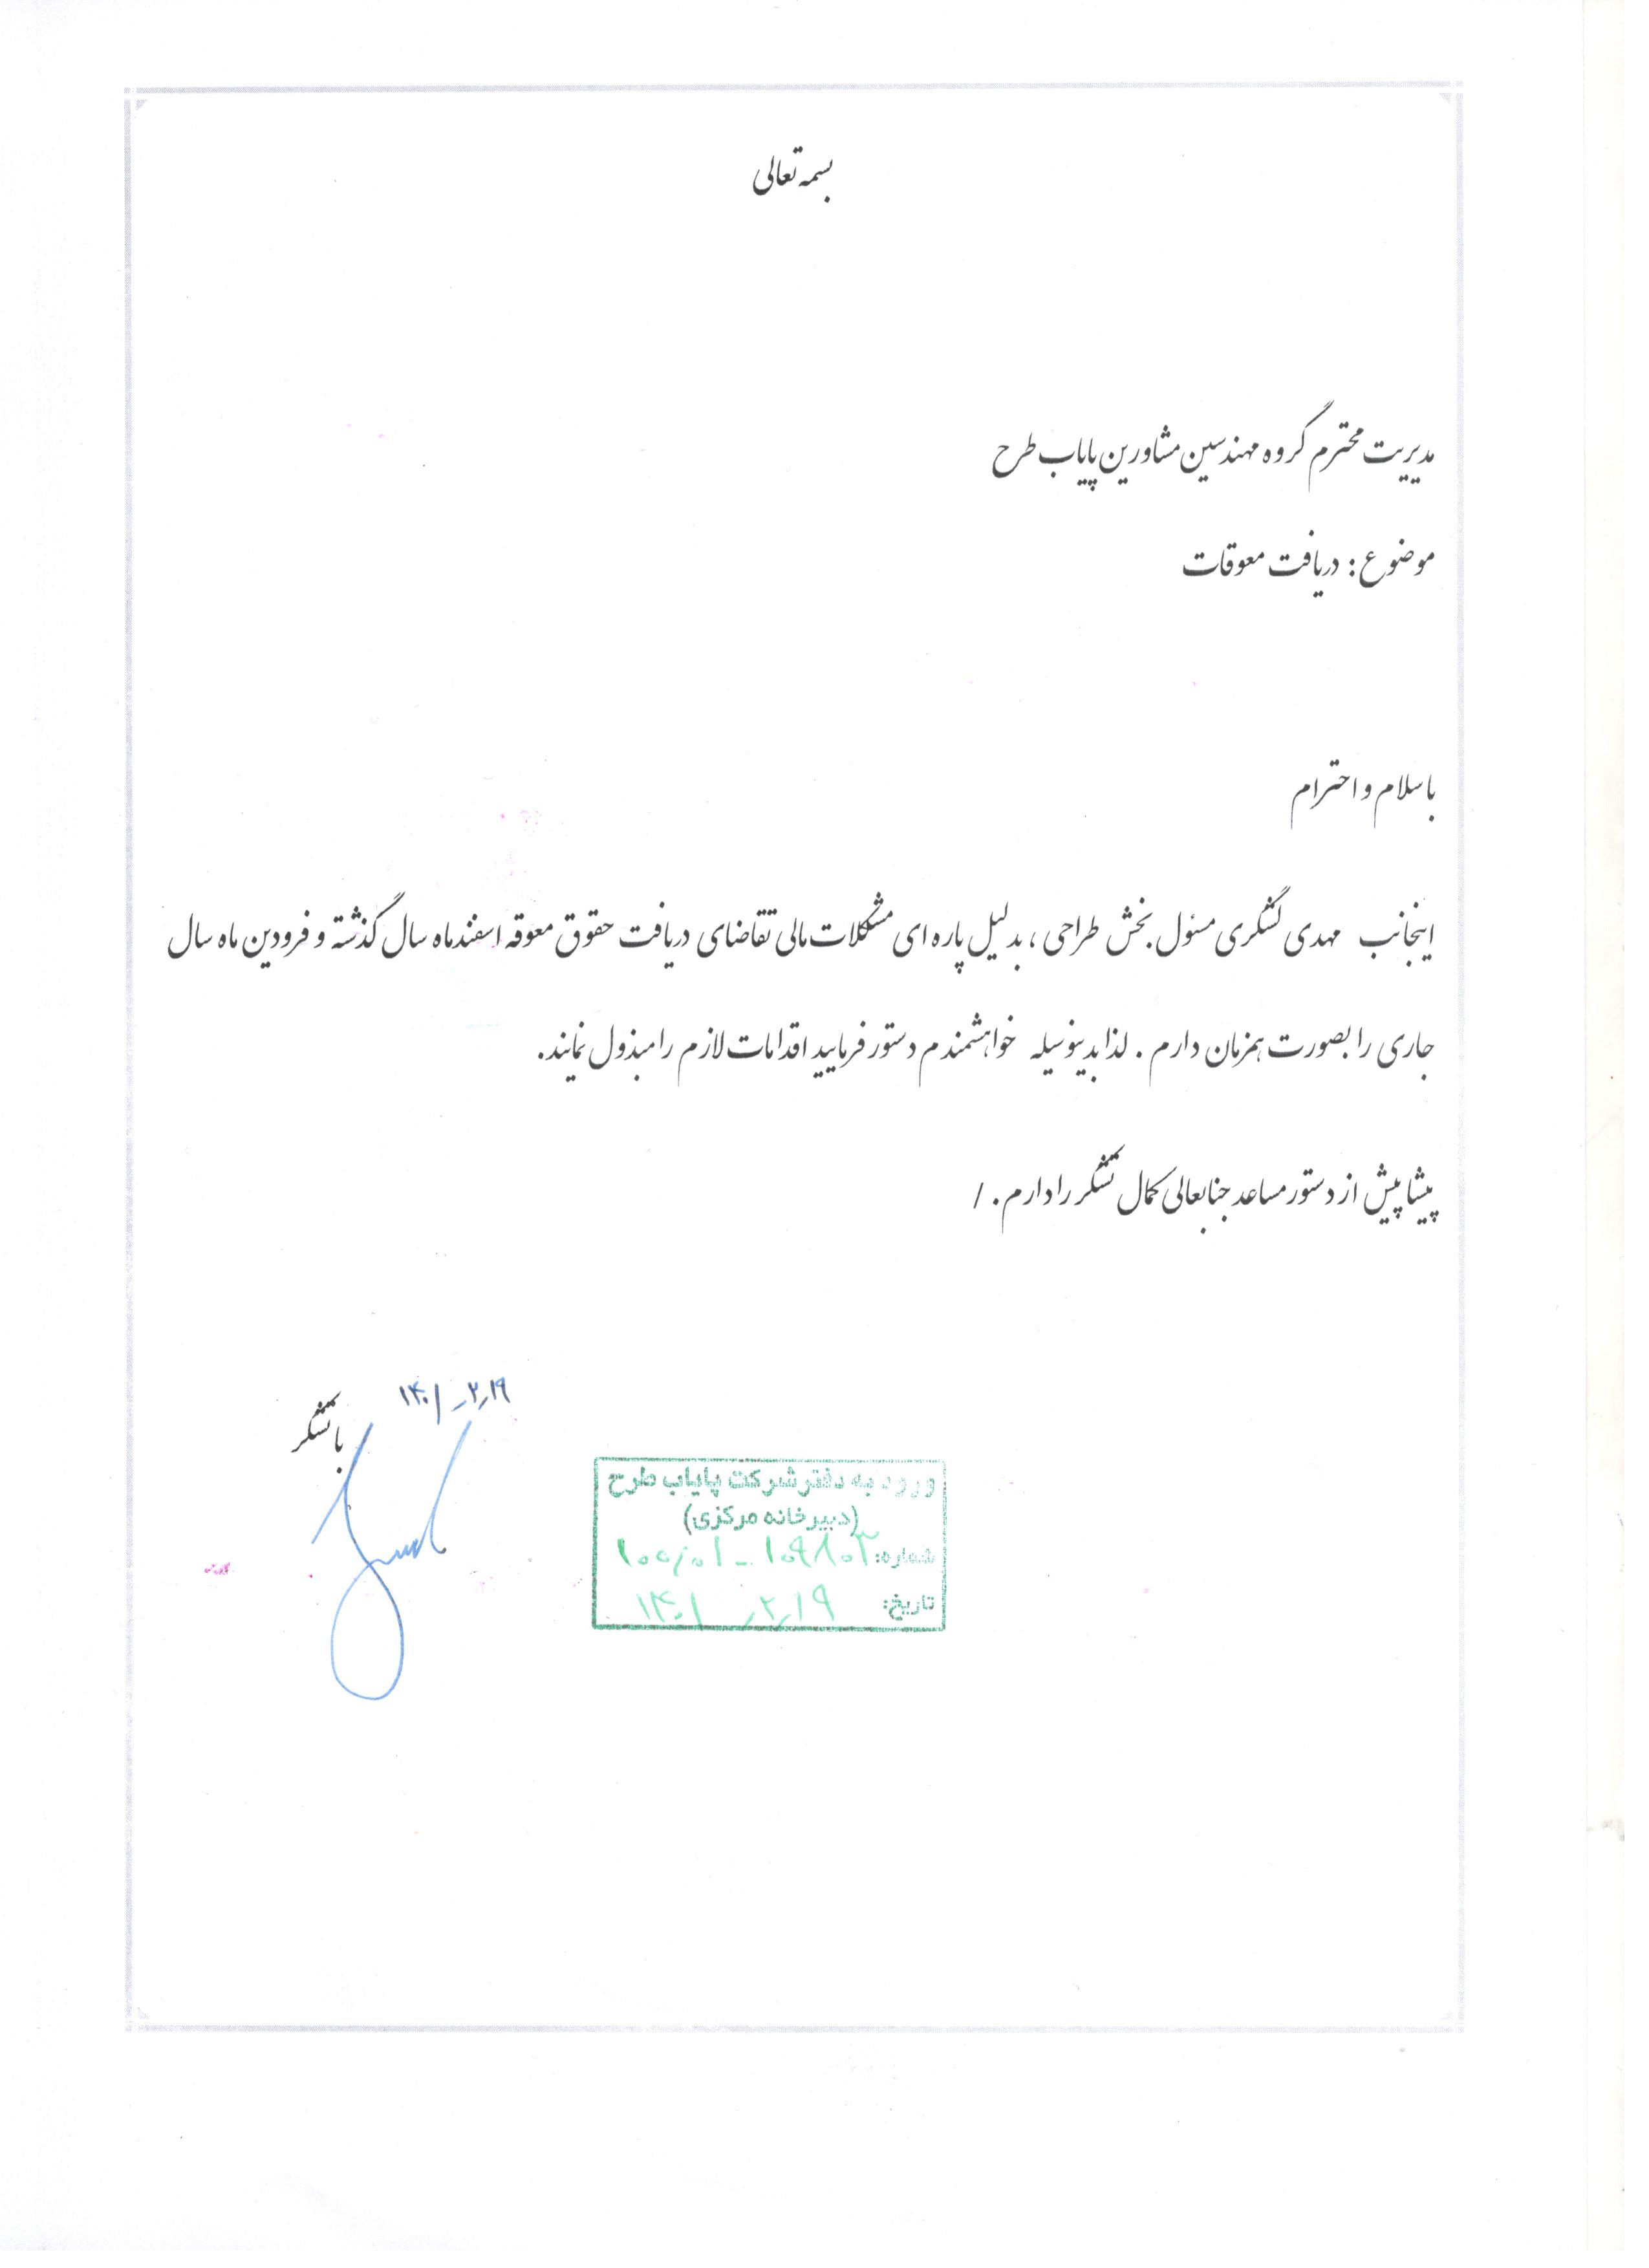 بسمه تعالی
مدیریت محترم گروه مهندسین مشاورین پایاب طرح
موضوع : دریافت معوقات
با سلام و احترام
اینجانب مهدی لشگری مسئول بخش طراحی ، بدلیل پاره ای مشکلات مالی تقاضای دریافت حقوق معوقه اسفندماه سال گذشته و فرودین ماه سال
جاری را بصورت همزمان دارم . لذا بدینوسیله خواهشمندم دستور فرمایید اقدامات لازم را مبذول نمایند.
پیشاپیش از دستور مساعد جنابعالی کمال تشکر را دارم . /
۱۴۰۱/۰۲/۱۹
با تشکر
ورود به دفتر شرکت پایاب طرح
(دبیرخانه مرکزی)
شماره: ۱۰۰/۰۱-۱۰۹۸۰۳
تاریخ: ۱۴۰۱/۰۲/۱۹